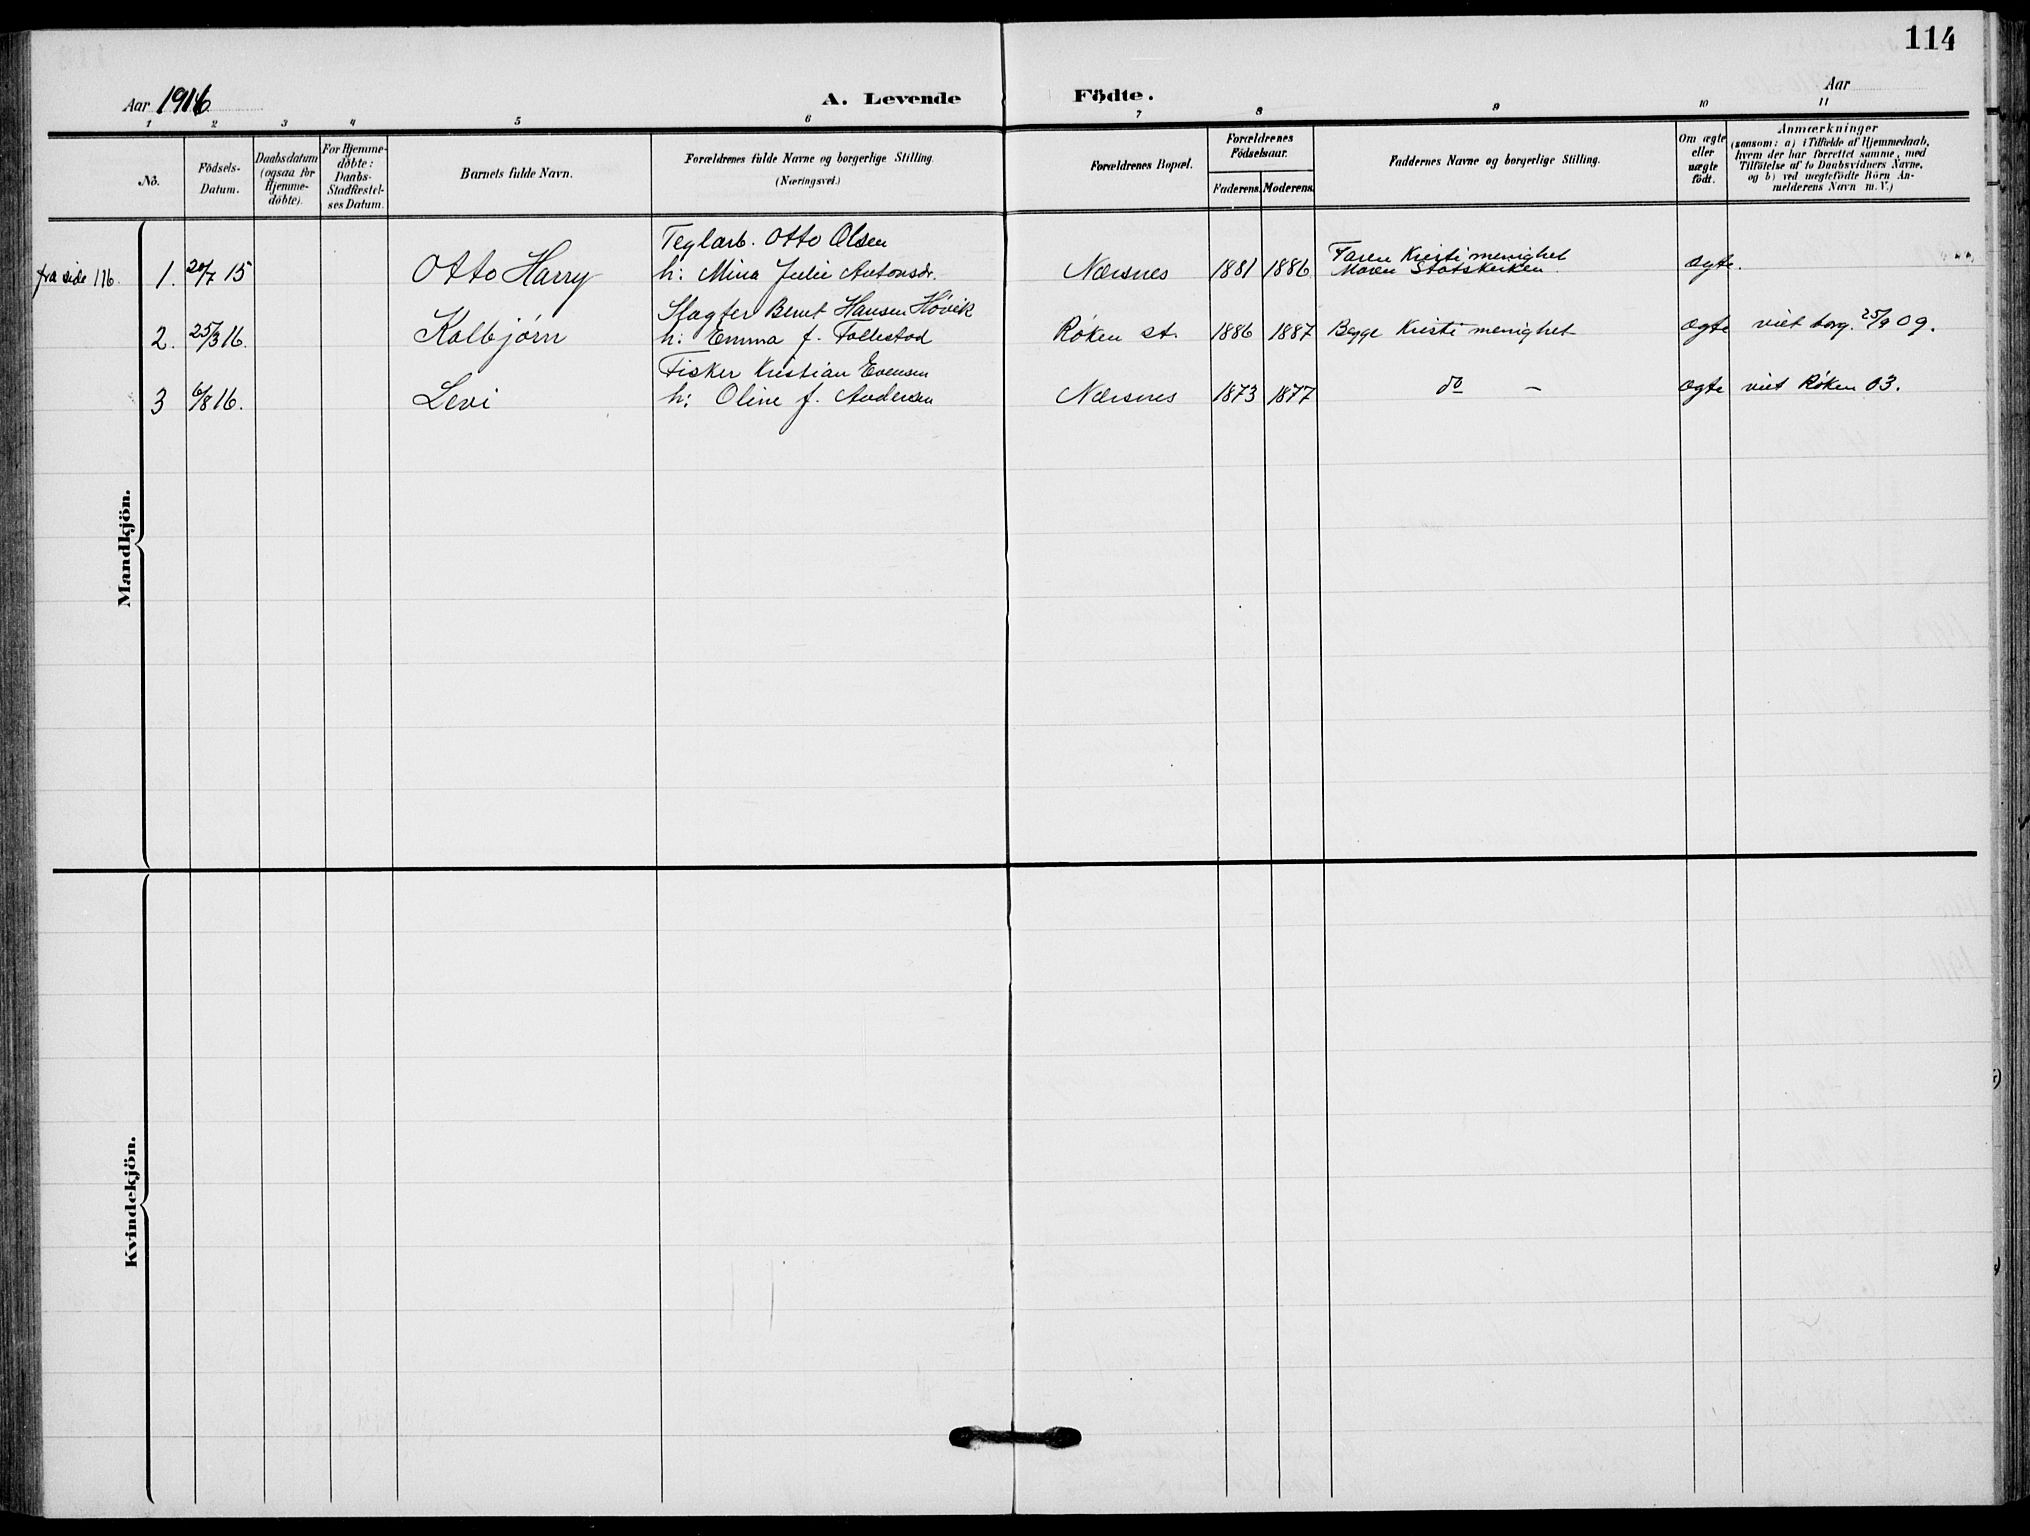 114
Aar 1916
A. Levende Födte.
Aar
1 2 3 4 5 6 7 8 9 10 11
No.
Födsels-
Datum.
Daabsdatum
(ogsaa for
Hjemme-
döbte).
For Hjemme-
döbte:
Daabs-
Stadfæstel-
ses Datum.
Barnets fulde Navn.
Forældrenes fulde Navne og borgerlige Stilling.
(Næringsvei.)
Forældrenes Bopæl.
Forældrenes
Födselsaar.
Faderens. Moderens.
Faddernes Navne og borgerlige Stilling.
Om ægte
eller
uægte
födt.
Anmærkninger
(saasom: a) i Tilfælde af Hjemmedaab,
hvem der har forrettet samme, med
Tilföielse af to Daabsvidners Navne,
og b) ved uægtefödte Börn An-
melderens Navn m. V.)
Mandkjön.
fra side 116.
Teglarb. Otto Olsen
1. 20/7 15 Otto Harry h: Mina Julie Antonsdr. Nærsnes 1881 1886 Faren Kristi menighet
Moren Statskirken. ægte.
Slagter Bernt Hansen Høvik
2. 25/3 16. Kolbjørn h: Emma f. Follestad Røken st. 1886 1887 Begge Kristi menighet ægte viet borg. 25/9 09.
Fisker Kristian Evensen
3 6/8 16. Levi h: Oline f. Andersen Nærsnes 1873 1877 do – ægte viet Røken 03.
Kvindekjön.